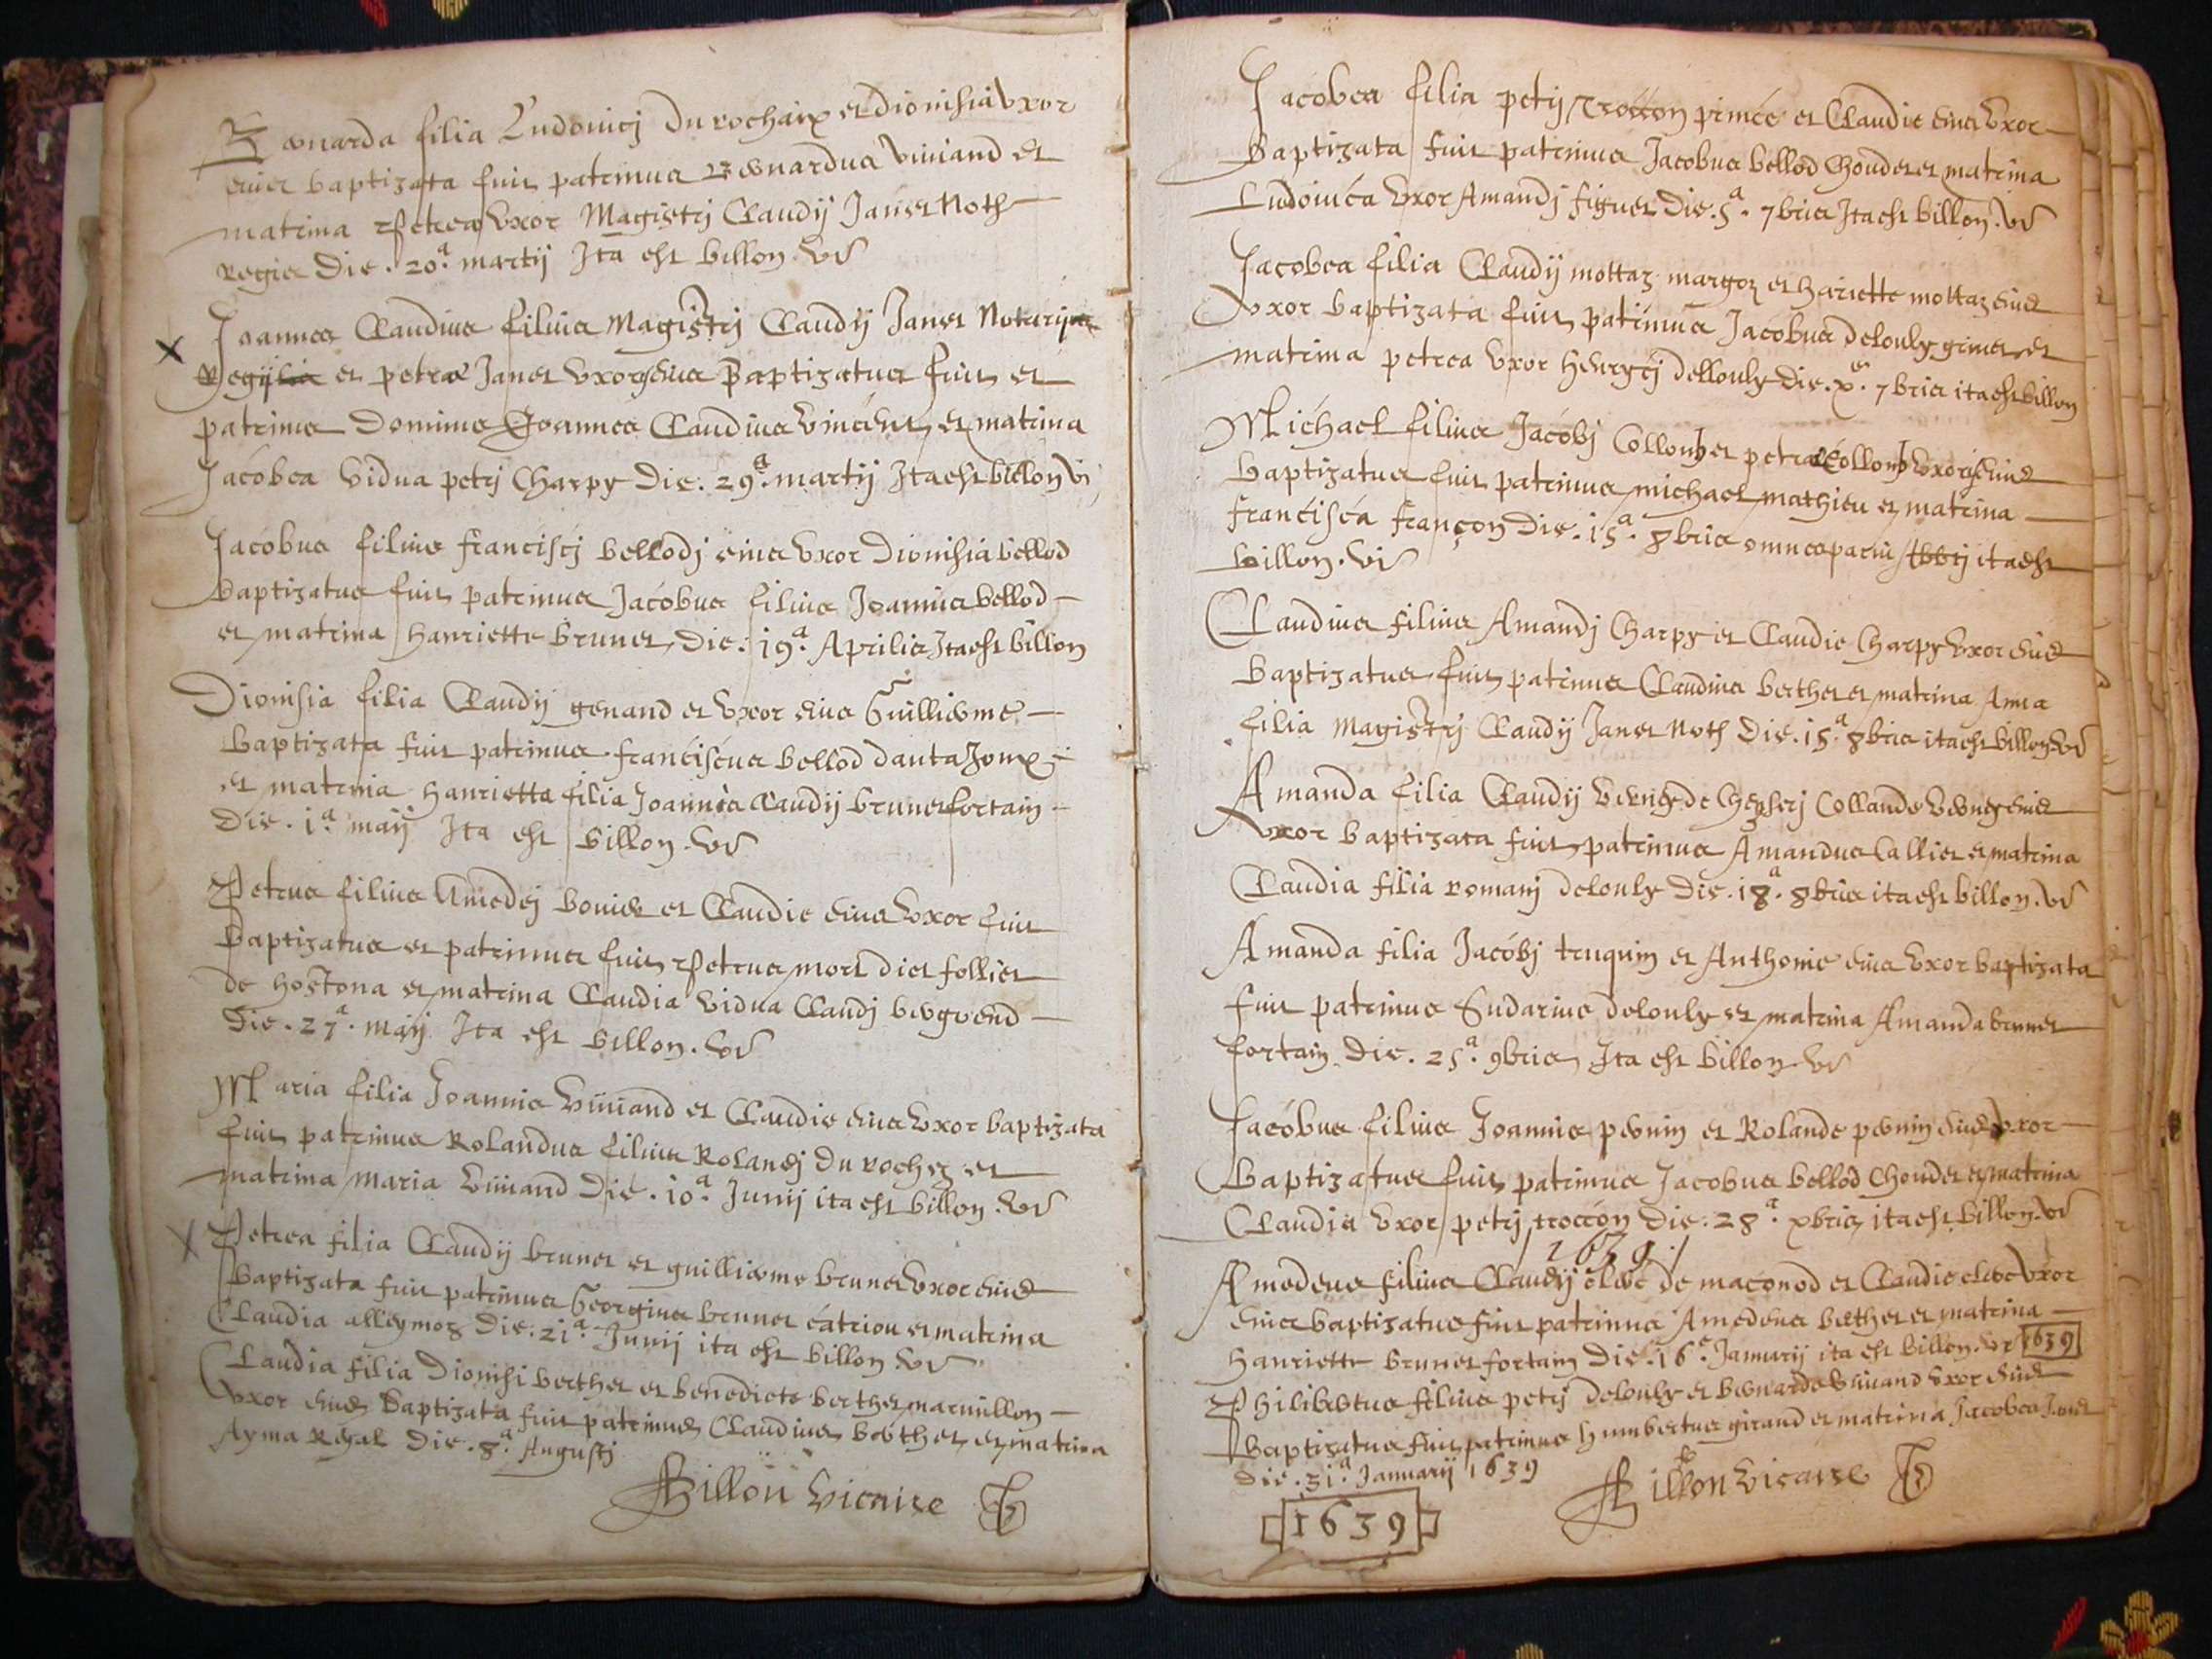 Bernarda filia Ludovicj Du rochaix et dionisia uxor
eius baptizata fuit patrinus Bernardus viuiand et
matrina Petrea uxor Magistrj Claudij Janet Noth
Regis Die . 20.a martij Ita est billon vic
Joannes Claudius filius Magistrj Claudij Janet Notarij
et petrae Janet uxoris eius Baptizatus fuit et
patrinus Dominus Joannes Claudius vincent et matrina
Jacobea vidua petrj Charpy die . 29.a martij Ita est billon vi
Jacobus filius franciscj bellodj eius uxor Dionisia bellod
baptizatus fuit patrinus Jacobus filius Joannis bellod
et matrina hanriette brunet die . 19.a Aprilis Ita est billon
Dionisia filia Claudij genand et uxor eius Guillierme
baptizata fuit patrinus franciscus bellod danta Joux
et matrina hanrietta filia Joannis Claudij brunet fortain
Die . 1.a maij Ita est billon . vic
Petrus filius Amedej bouier et Claudie eius uxor fuit
baptizatus et patrinus fuit Petrus morl dict follier
de hostona et matrina Claudia vidua Claudj
Die . 27.a maij Ita est billon . vic
Maria filia Joannis viuiand et Claudie eius uxor baptizata
fuit patrinus Rolandus filius Rolandj du rochez et
matrina maria viuiand Die . 10.a Junij ita est billon . vic
Petrea filia Claudij brunet et guillierme brunet uxor eius
baptizata fuit patrinus Georgius brunet catriou et matrina
Claudia alleymoz die . 21.a Junij ita est billon vic
Claudia filia Dionisi berthet et benedicte berthet marmillon
uxor eius baptizata fuit patrinus Claudius berthet et matrina
Ayma Regal die . 8.a Augustj
Billon vicaire
Jacobea filia petrj Troccon prince et Claudie eius uxor
baptizata fuit patrinus Jacobus bellod Choudet et matrina
Ludovica uxor Amandj figuet die . 5.a 7bris Ita est billon . vic
Jacobea filia Claudij mottaz margoz et hariette mottaz eius
uxor baptizata fuit patrinus Jacobus delouly grinet et
matrina petrea uxor henrycj dellouly die . x.a 7bris ita est billon
Michael filius Jacobj Collomb et petrae Collomb uxoris eius
baptizatus fuit patrinus michael mathieu et matrina
francisca françon die . 15.a 8bris ita est
billon . vic
Claudius filius Amandj Charpy et Claudie Charpy uxor eius
baptizatus fuit patrinus Claudius berthet et matrina Anna
filia Magistrj Claudij Janet Noth die . 15.a 8bris ita est billon vic
Amanda filia Claudij Collande eius
uxor baptizata fuit patrinus Amandus Callier et matrina
Claudia filia romanj delouly die . 18.a 8bris ita est billon . vic
Amanda filia Jacobj truquin et Anthonie eius uxor baptizata
fuit patrinus Sudarius delouly et matrina Amanda brunet
fortain die . 25.a 9bris Ita est billon vic
Jacobus filius Joannis pernin et Rolande pernin eius uxor
baptizatus fuit patrinus Jacobus bellod Choudet et matrina
Claudia uxor petrj troccon die . 28.a xbris ita est billon . vic
1639
Amedeus filius Claudij clerc de maconod et Claudie clerc uxor
eius baptizatus fuit patrinus Amedeus berthet et matrina
hanriette brunet fortain Die . 16.a Januarij ita est billon . vic 1639
Philibertus filius petrj delouly et bernarde viuiand uxor eius
baptizatus fuit patrinus humbertus girand et matrina Jacobea Janet
die . 31.a Januarij 1639
Billon vicaire
1639